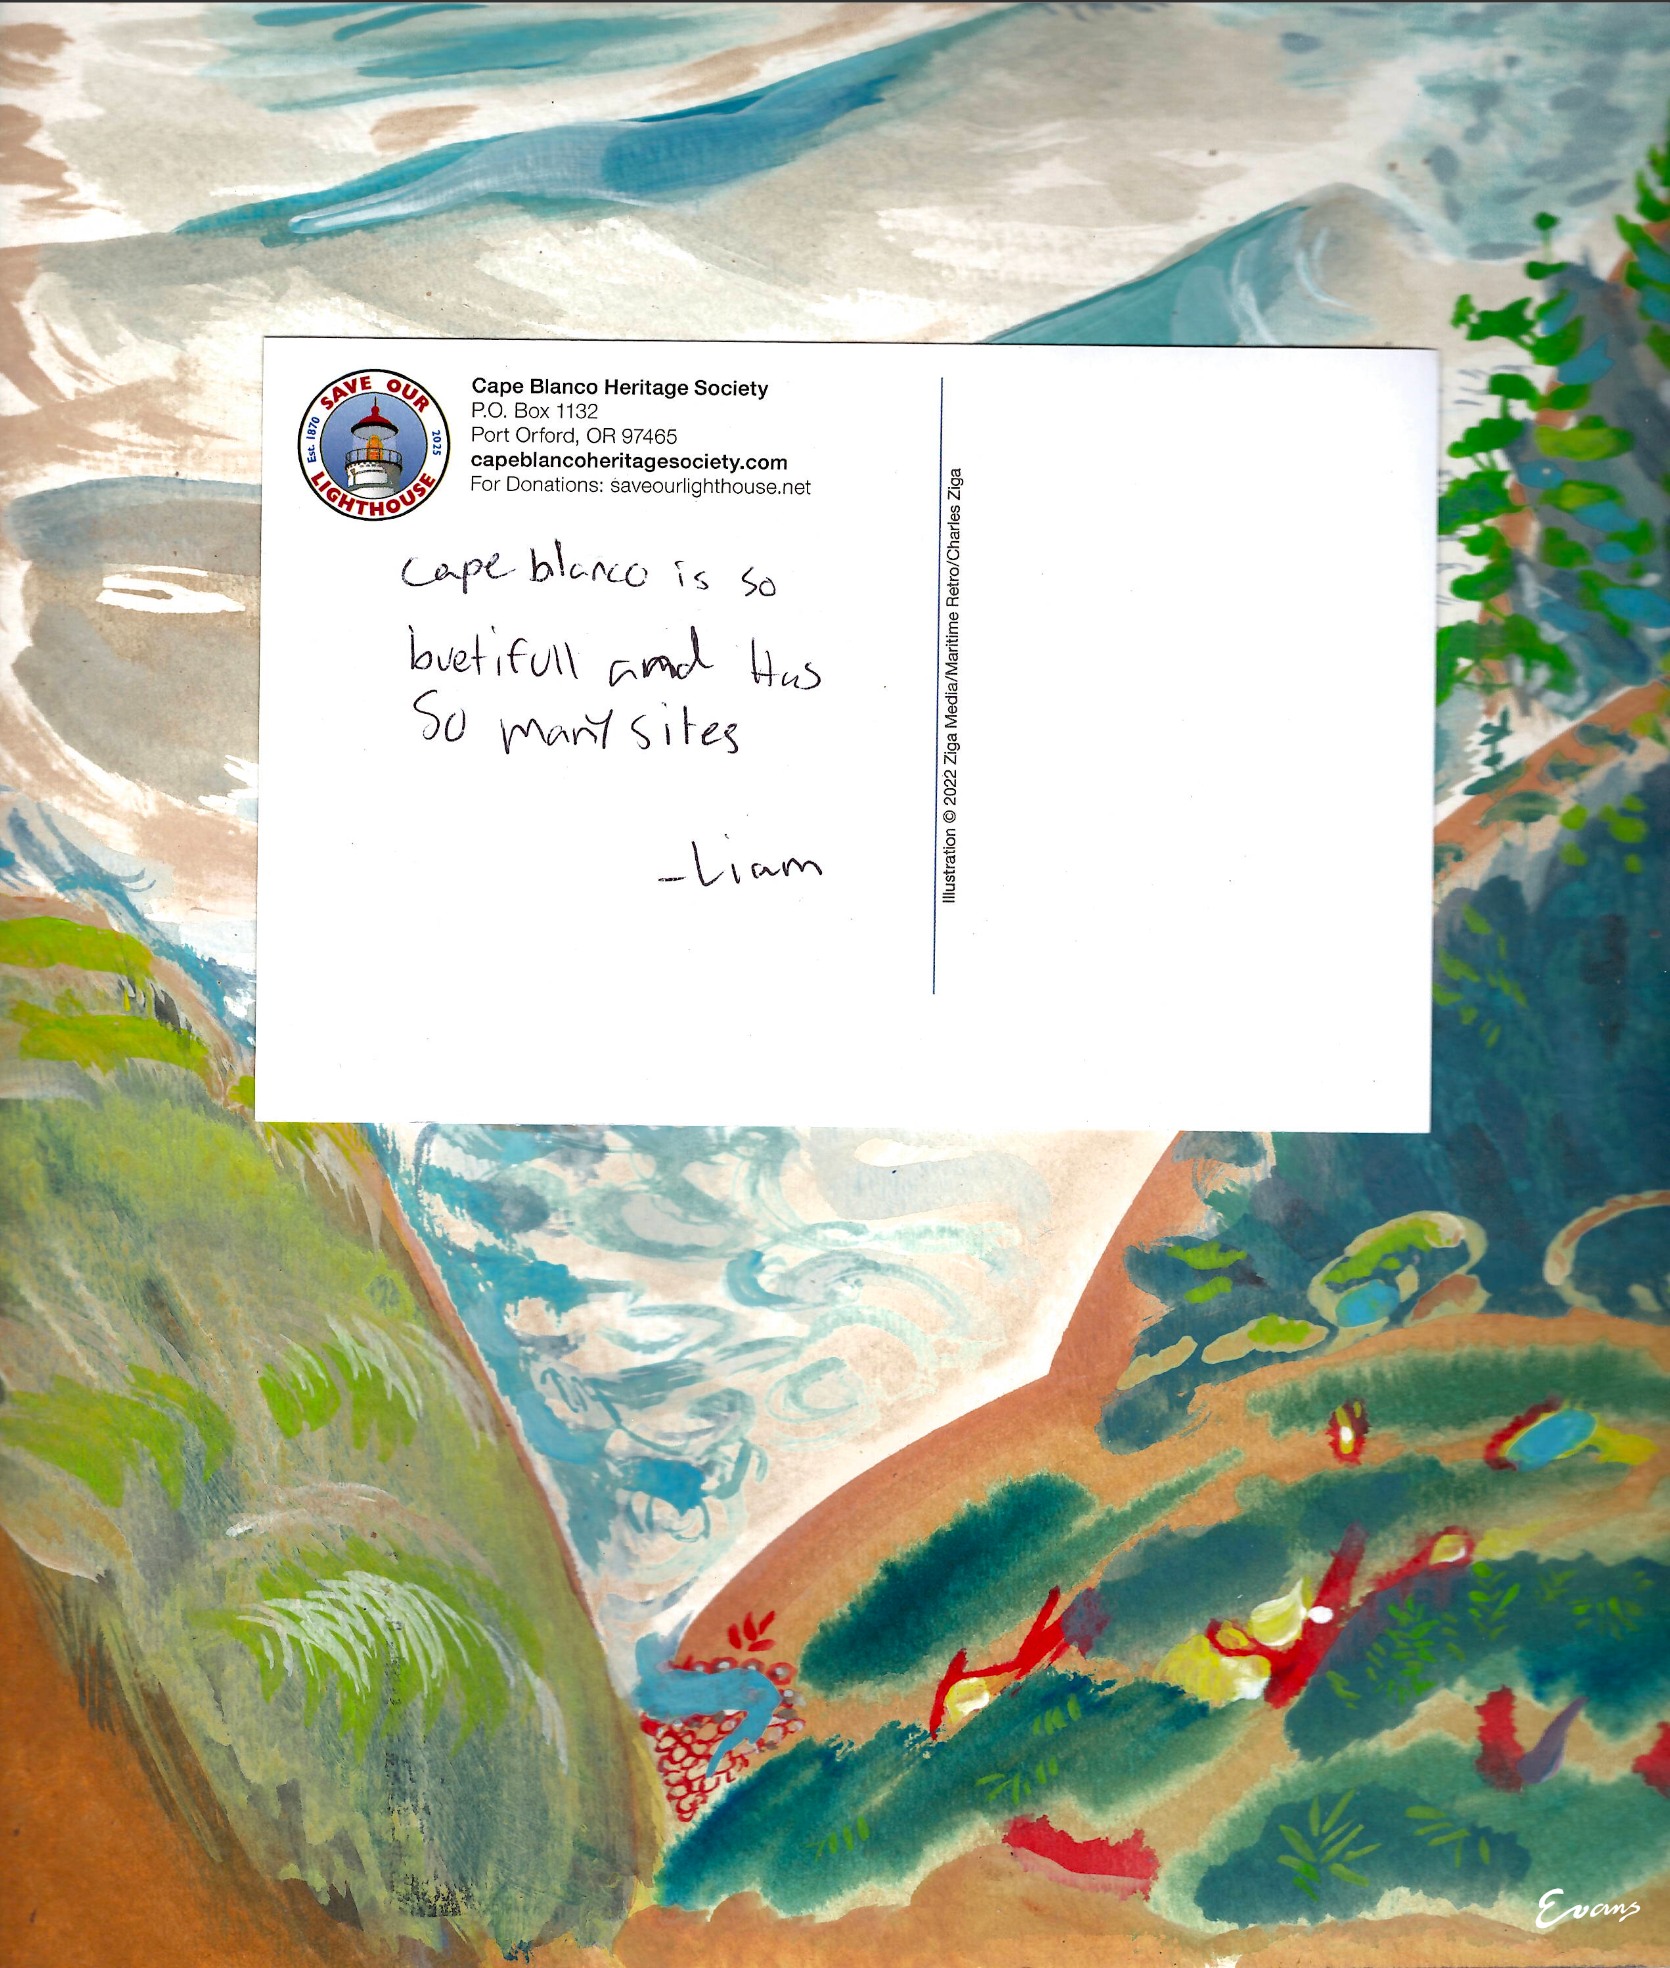 SAVE OUR
LIGHTHOUSE
Est. 1870
2025
Cape Blanco Heritage Society
P.O. Box 1132
Port Orford, OR 97465
capeblancoheritagesociety.com
For Donations: saveourlighthouse.net
Cape blanco is so
buetifull and Has
So many sites
-Liam
Illustration © 2022 Ziga Media/Maritime Retro/Charles Ziga
Evans